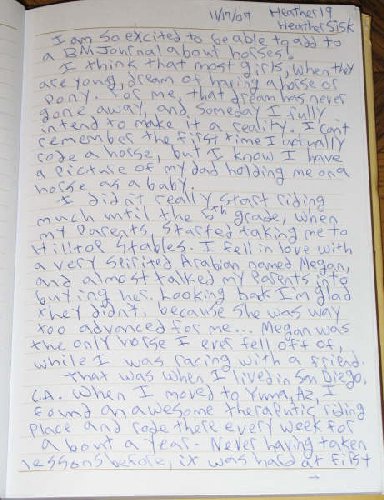 11/17/09 Heather19
Heather Sisk
I am so excited to be able to add to
a BMJournal about horses!
I think that most girls, when they
are young, dream of having a horse or
pony. For me, that dream has never
gone away, and someday I fully
intend to make it a reality. I can't
remember the first time I actually
rode a horse, but I know I have
a picture of my dad holding me on a
horse as a baby.
I didn't really start riding
much until the 5th grade, when
my parents, started taking me to
Hilltop Stables. I fell in love with
a very spirited Arabian named Megan,
and almost talked my parents into
buying her. Looking back I'm glad
they didn't, because she was way
too advanced for me... Megan was
the only horse I ever fell off of,
while I was racing with a friend.
That was when I lived in San Diego,
CA. When I moved to Yuma, AZ, I
found an awesome therapeutic riding
place and rode there every week for
about a year. Never having taken
lessons before, it was hard at first
→